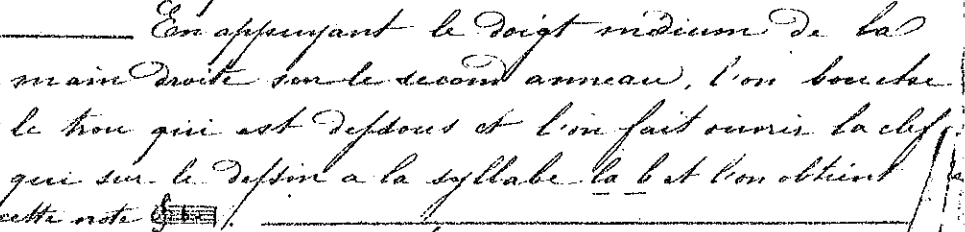 En appuyant le doigt médium de la
main droite sur le second anneau, l'on bouche
le trou qui est dessous et l'on fait ouvrir la clef
qui sur le dessin a la syllabe la b et l'on obtient
cette note